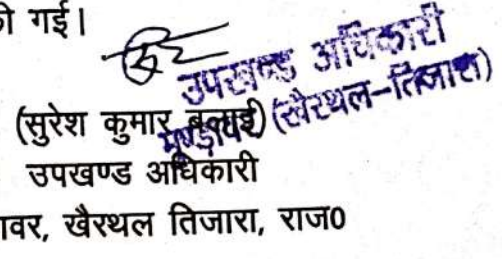 ी गई।
उपखण्ड अधिकारी
मुण्डावर (खैरथल-तिजारा)
(सुरेश कुमार बुलाई)
उपखण्ड अधिकारी
ावर, खैरथल तिजारा, राज0